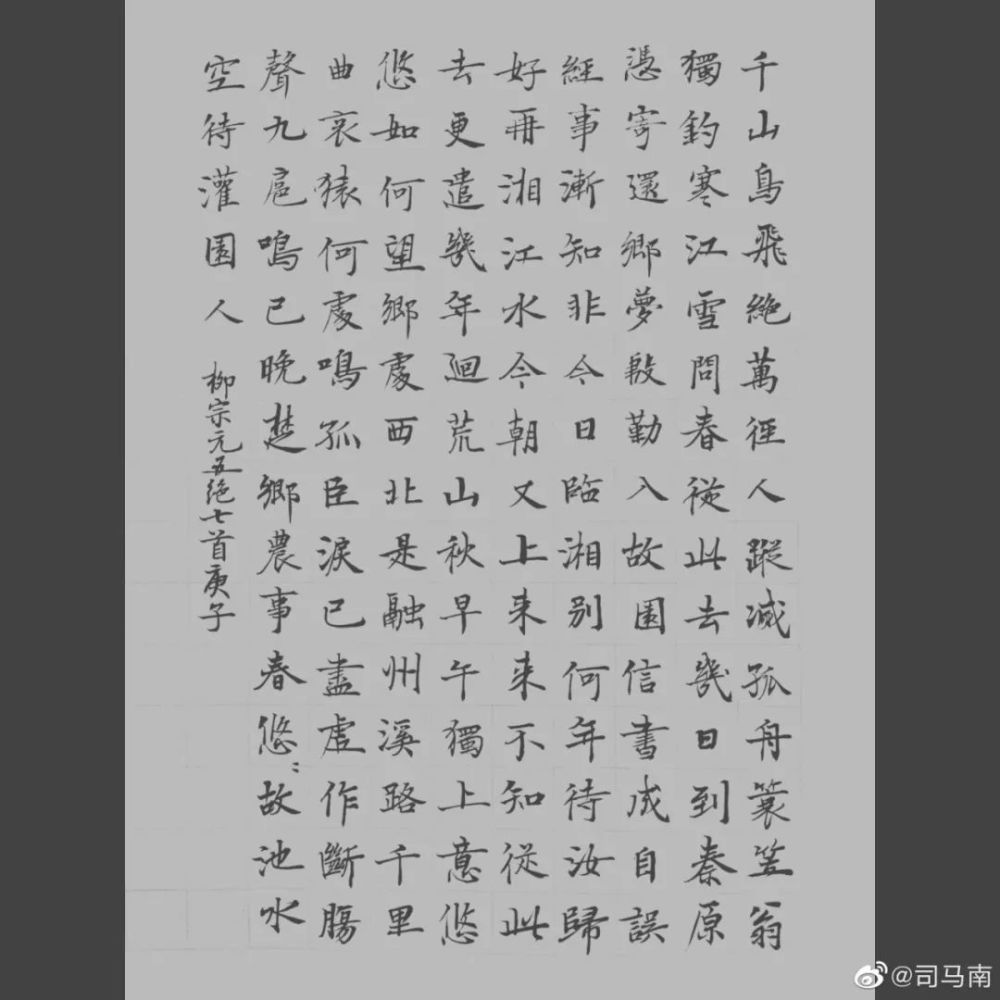 千山鳥飛絶萬徑人蹤滅孤舟簑笠翁
獨釣寒江雪問春從此去幾日到秦原
憑寄還鄉夢殷勤入故園信書成自誤
經事漸知非今日臨湘別何年待汝歸
好再湘江水今朝又上来来不知從此
去更遣幾年廻荒山秋早午獨上意悠
悠如何望鄉處西北是融州溪路千里
曲哀猿何處鳴孤臣淚已盡虛作斷腸
聲九扈鳴已晚楚鄉農事春悠〻故池水
空待灌園人 柳宗元五绝七首庚子
@司马南